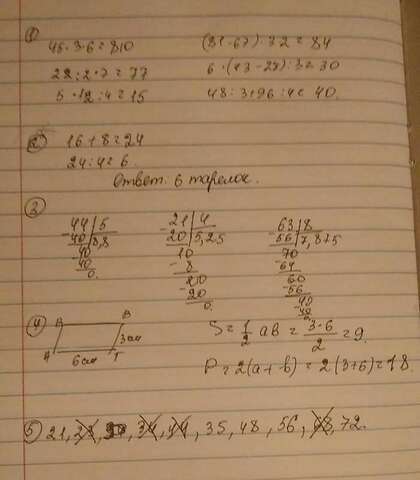 ①
45·3·6=810 (91-67):32=84
22:2·7=77 6·(43-28):3=30
5·12:4=15 48:3+96:4=40.
② 16+8=24
24:4=6.
Ответ. 6 тарелок.
③
44|5 21|4 63|8
-40|8,8 -20|5,25 -56|7,875
40 10 70
-40 -8 -64
0. 20 60
-20 -56
0. 40
-40
0.
④
B B
3см
A T
6см
S=1/2 ab=3·6/2=9.
P=2(a+b)=2(3+6)=18.
⑤ 21, 35, 48, 56, 72.